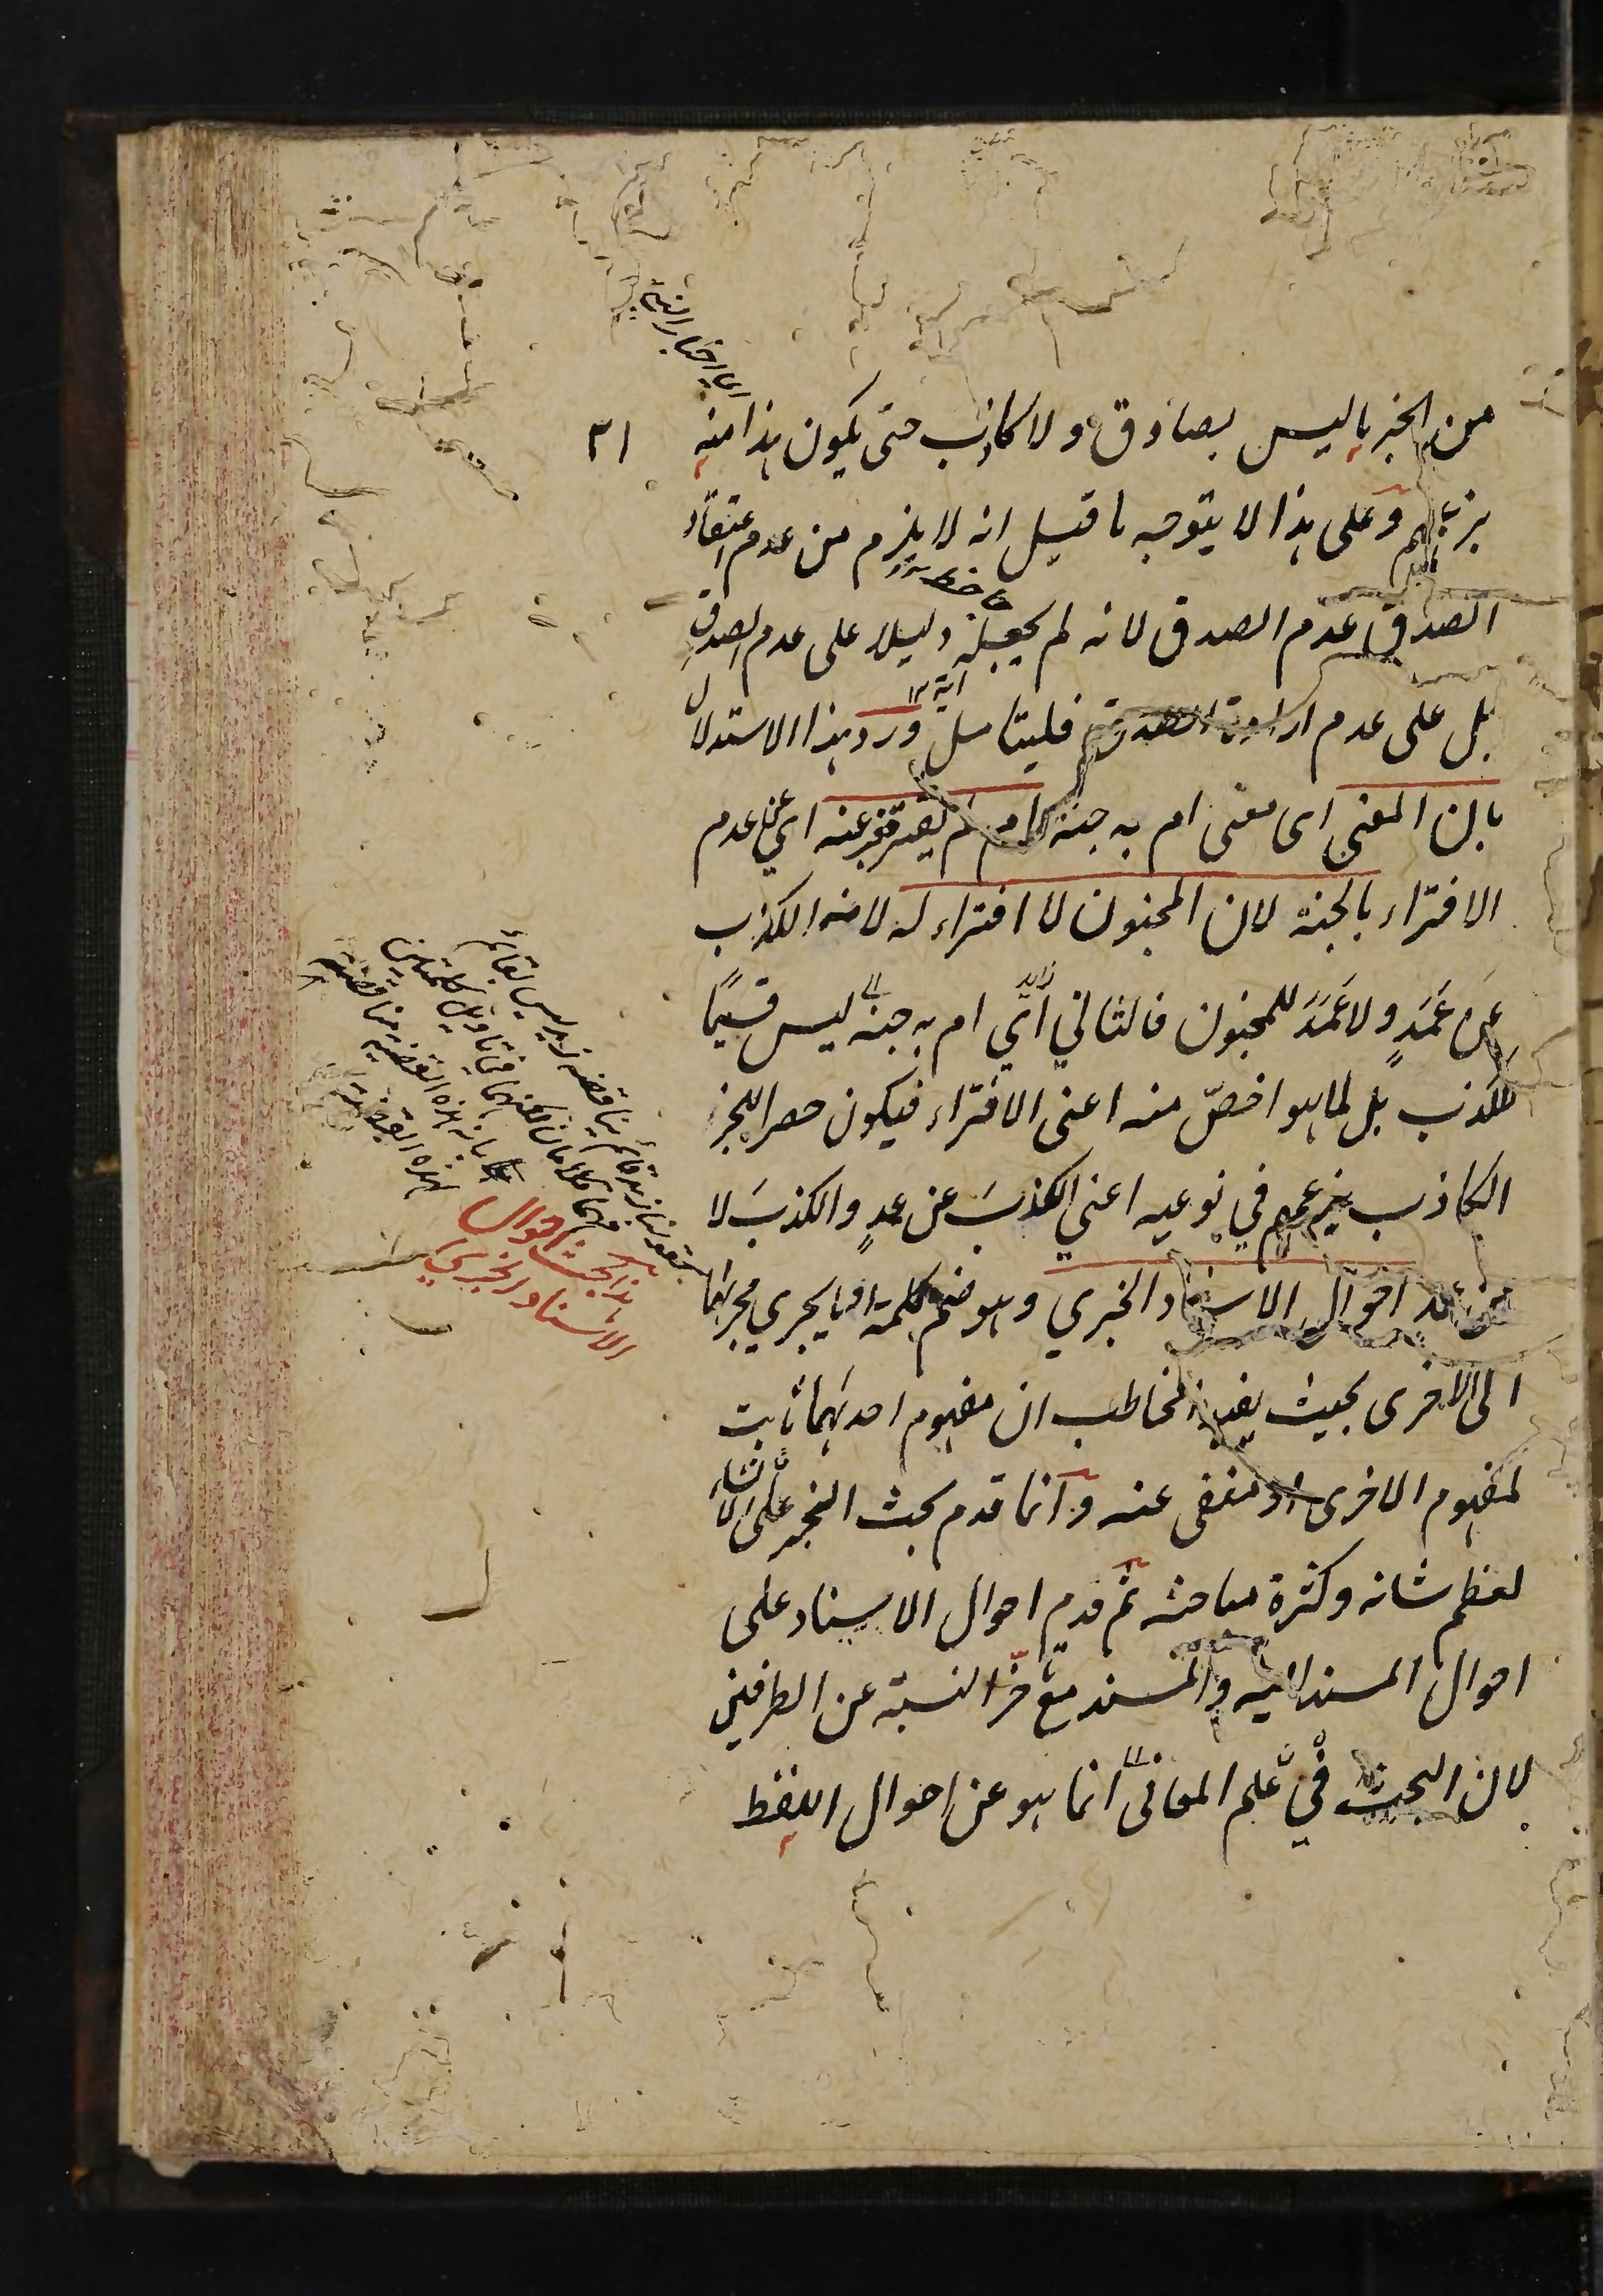 من الخبر ما ليس بصادق ولا كاذب حتى يكون هذا منه
بزعمهم وعلى هذا لا يتوجه ما قيل انه لا يلزم من عدم اعتقاد
الصدق عدم الصدق لانه لم يجعله دليلا على عدم الصدق
بل على عدم ارادة الصدق فليتامل ورد هذا الاستدلال
بان المعنى اى معنى ام به جنة ام لم يفتر فعبر عنه اي عن عدم
الافتراء بالجنة لان المجنون لا افتراء له لانه الكذب
عن عَمَدٍ ولا عَمَدَ للمجنون فالثاني اي ام به جنة ليس قسيمًا
للكذب بل لما هو اخصّ منه اعنى الافتراء فيكون حصرا للخبر
الكاذب بزعمهم في نوعيه اعني الكذبَ عن عمدٍ والكذبَ لا
عن عمد احوال الاسناد الخبري وهو ضم كلمة او ما يجري مجراها
الى الاخرى بحيث يفيد المخاطب ان مفهوم احديهما ثابت
لمفهوم الاخرى او منفى عنه وانما قدم بحث الخبر على الانشاء
لعظم شانه وكثرة مباحثه ثم قدم احوال الاسناد على
احوال المسند اليه والمسند مع تاخر النسبة عن الطرفين
لان البحث في علم المعانى انما هو عن احوال اللفظ
٣١
هذا بحث احوال
الاسناد الخبري